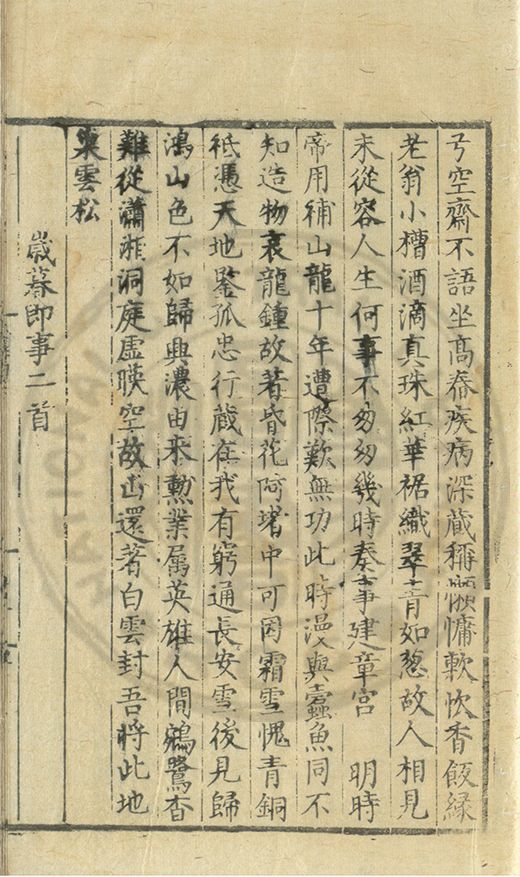 空齋不語坐高舂疾病深蔵稱懶慵軟炊香飯縁
老翁小槽酒滴真珠紅華裾織翠青如葱故人相見
未從容人生何事不匆匆幾時奏事建章宮　明時
帝用補山龍十年遭際歎無功此時漫與蠹魚同不
知造物哀龍鍾故著昏花阿堵中可因霜雪愧青銅
祗憑天地鍳孤忠行蔵在我有窮通長安雪後見歸
鴻山色不如歸興濃由来勲業属英雄人間鵷鷺杳
難從瀟湘洞庭虛暎空故山還著白雲封吾將此地
巢雲松
歳暮即事二首